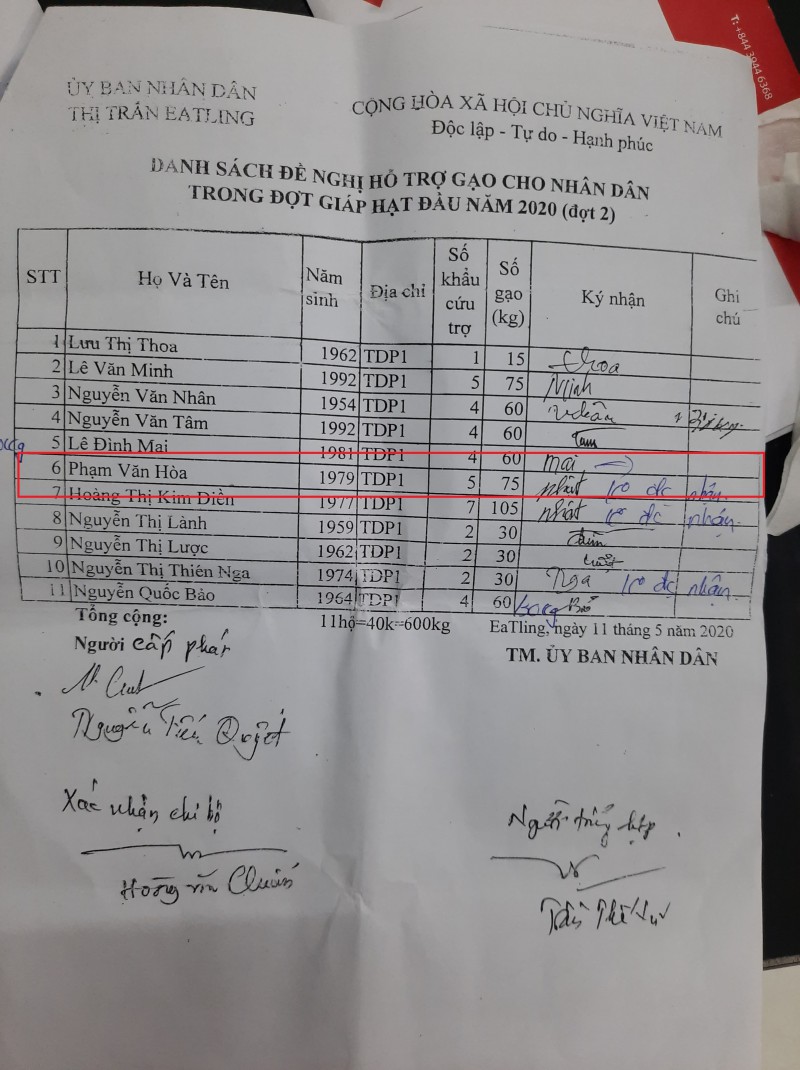 T: +844 3944 6368
ỦY BAN NHÂN DÂN
THỊ TRẤN EATLING
CỘNG HÒA XÃ HỘI CHỦ NGHĨA VIỆT NAM
Độc lập - Tự do - Hạnh phúc
DANH SÁCH ĐỀ NGHỊ HỖ TRỢ GẠO CHO NHÂN DÂN
TRONG ĐỢT GIÁP HẠT ĐẦU NĂM 2020 (đợt 2)
STT Họ Và Tên Năm sinh Địa chỉ Số khẩu cứu trợ Số gạo (kg) Ký nhận Ghi chú
1 Lưu Thị Thoa 1962 TDP1 1 15 Thoa
2 Lê Văn Minh 1992 TDP1 5 75 Minh
3 Nguyễn Văn Nhân 1954 TDP1 4 60 Nhân
4 Nguyễn Văn Tâm 1992 TDP1 4 60 Tam
5 Lê Đình Mai 1981 TDP1 4 60 Mai
6 Phạm Văn Hòa 1979 TDP1 5 75 nhận
7 Hoàng Thị Kim Điền 1977 TDP1 7 105 nhận
8 Nguyễn Thị Lành 1959 TDP1 2 30
9 Nguyễn Thị Lược 1962 TDP1 2 30
10 Nguyễn Thị Thiên Nga 1974 TDP1 2 30 Nga nhận
11 Nguyễn Quốc Bảo 1964 TDP1 4 60 Bảo
Tổng cộng: 11hộ=40k=600kg
EaTling, ngày 11 tháng 5 năm 2020
Người cấp phát
TM. ỦY BAN NHÂN DÂN
Nguyễn Tiến Quyết
Xác nhận chi bộ
Người tổng hợp
Hoàng Văn Chuẩn